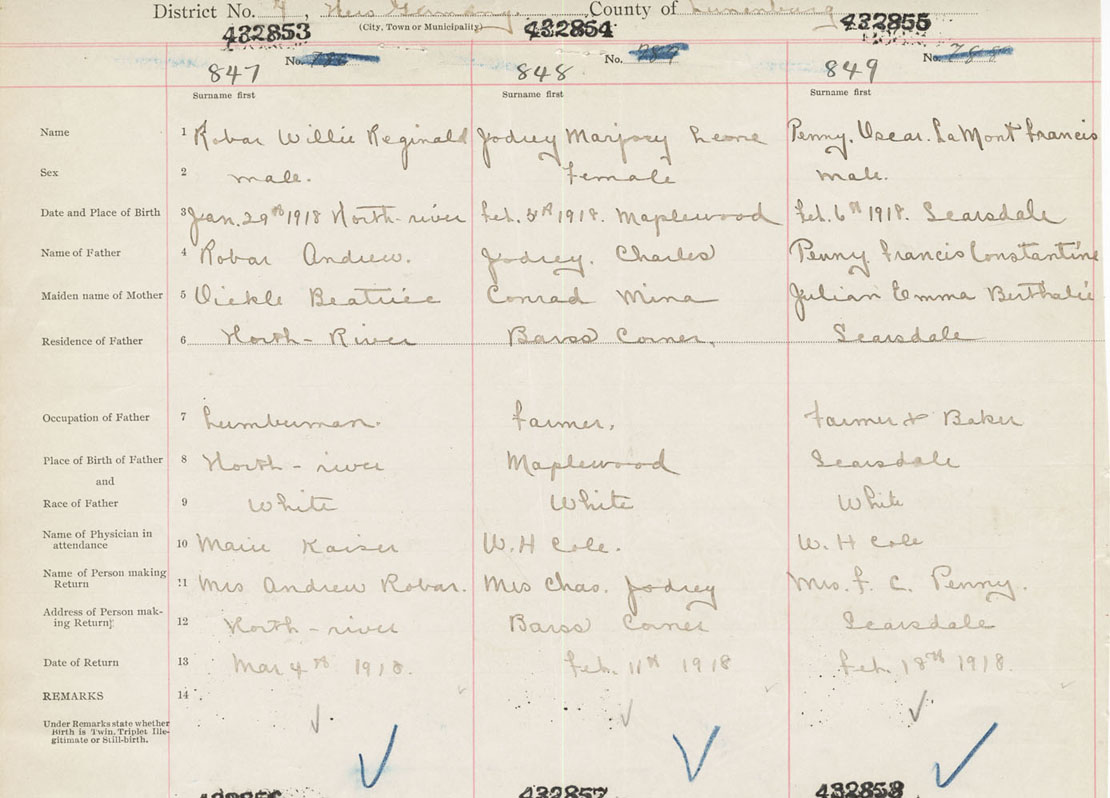 District No. 7, New Germany. County of Lunenburg
(City, Town or Municipality)
432853 432854 432855
847 No. 786 848 No. 787 849 No. 788
Surname first Surname first Surname first
Name 1 Robar Willie Reginald Jodrey Marjory Leone Penny. Oscar. LaMont Francis
Sex 2 male. Female male.
Date and Place of Birth 3 Jan. 29th 1918 North-river Feb. 1918. Maplewood Feb. 6th 1918. Scarsdale
Name of Father 4 Robar Andrew. Jodrey. Charles Penny Francis Constantine
Maiden name of Mother 5 Veickle Beatrice Conrad Mina Julian Emma Berthalie
Residence of Father 6 North-River Barss Corner. Scarsdale
Occupation of Father 7 Lumberman. Farmer. Farmer & Baker
Place of Birth of Father 8 North-river Maplewood Scarsdale
and
Race of Father 9 White White White
Name of Physician in
attendance 10 Kaiser W. H Cole. W. H Cole
Name of Person making
Return 11 Mrs Andrew Robar. Mrs Chas. Jodrey Mrs. F. C. Penny.
Address of Person mak-
ing Return 12 North-river Barss Corner Scarsdale
Date of Return 13 Mar 4th 1918. Feb. 11th 1918 Feb. 18th 1918.
REMARKS 14
Under Remarks state whether
Birth is Twin, Triplet Ille-
gitimate or Still-birth.
432856 432857 432858